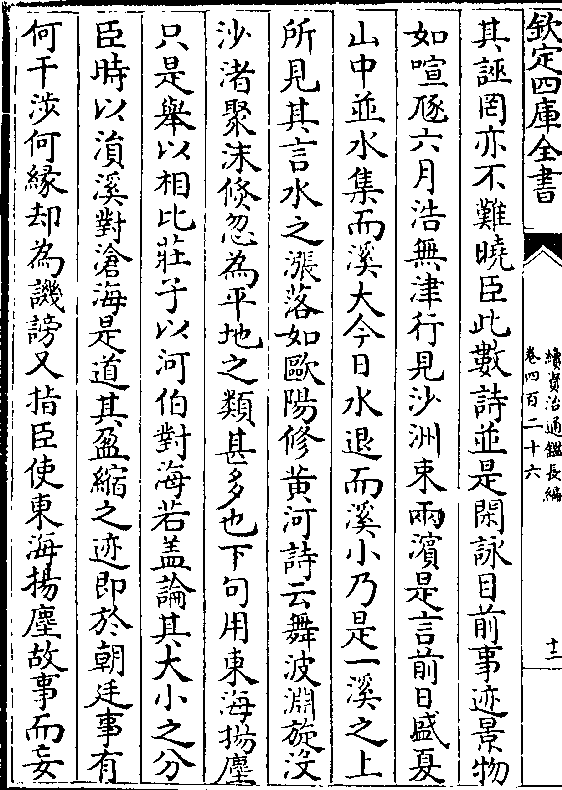 欽定四庫全書
續資治通鑑長編
卷四百二十六
十二
其誣罔亦不難曉臣此數詩並是閑詠目前事迹景物
如喧豗六月浩無津行見沙洲束兩濱是言前日盛夏
山中並水集而溪大今日水退而溪小乃是一溪之上
所見其言水之漲落如歐陽修黄河詩云舞波淵旋没
沙渚聚沫倐忽為平地之類甚多也下句用東海揚塵
只是舉以相比莊子以河伯對海若盖論其大小之分
臣時以溳溪對滄海是道其盈縮之迹即於朝廷事有
何干涉何縁却為譏謗又指臣使東海揚塵故事而妄